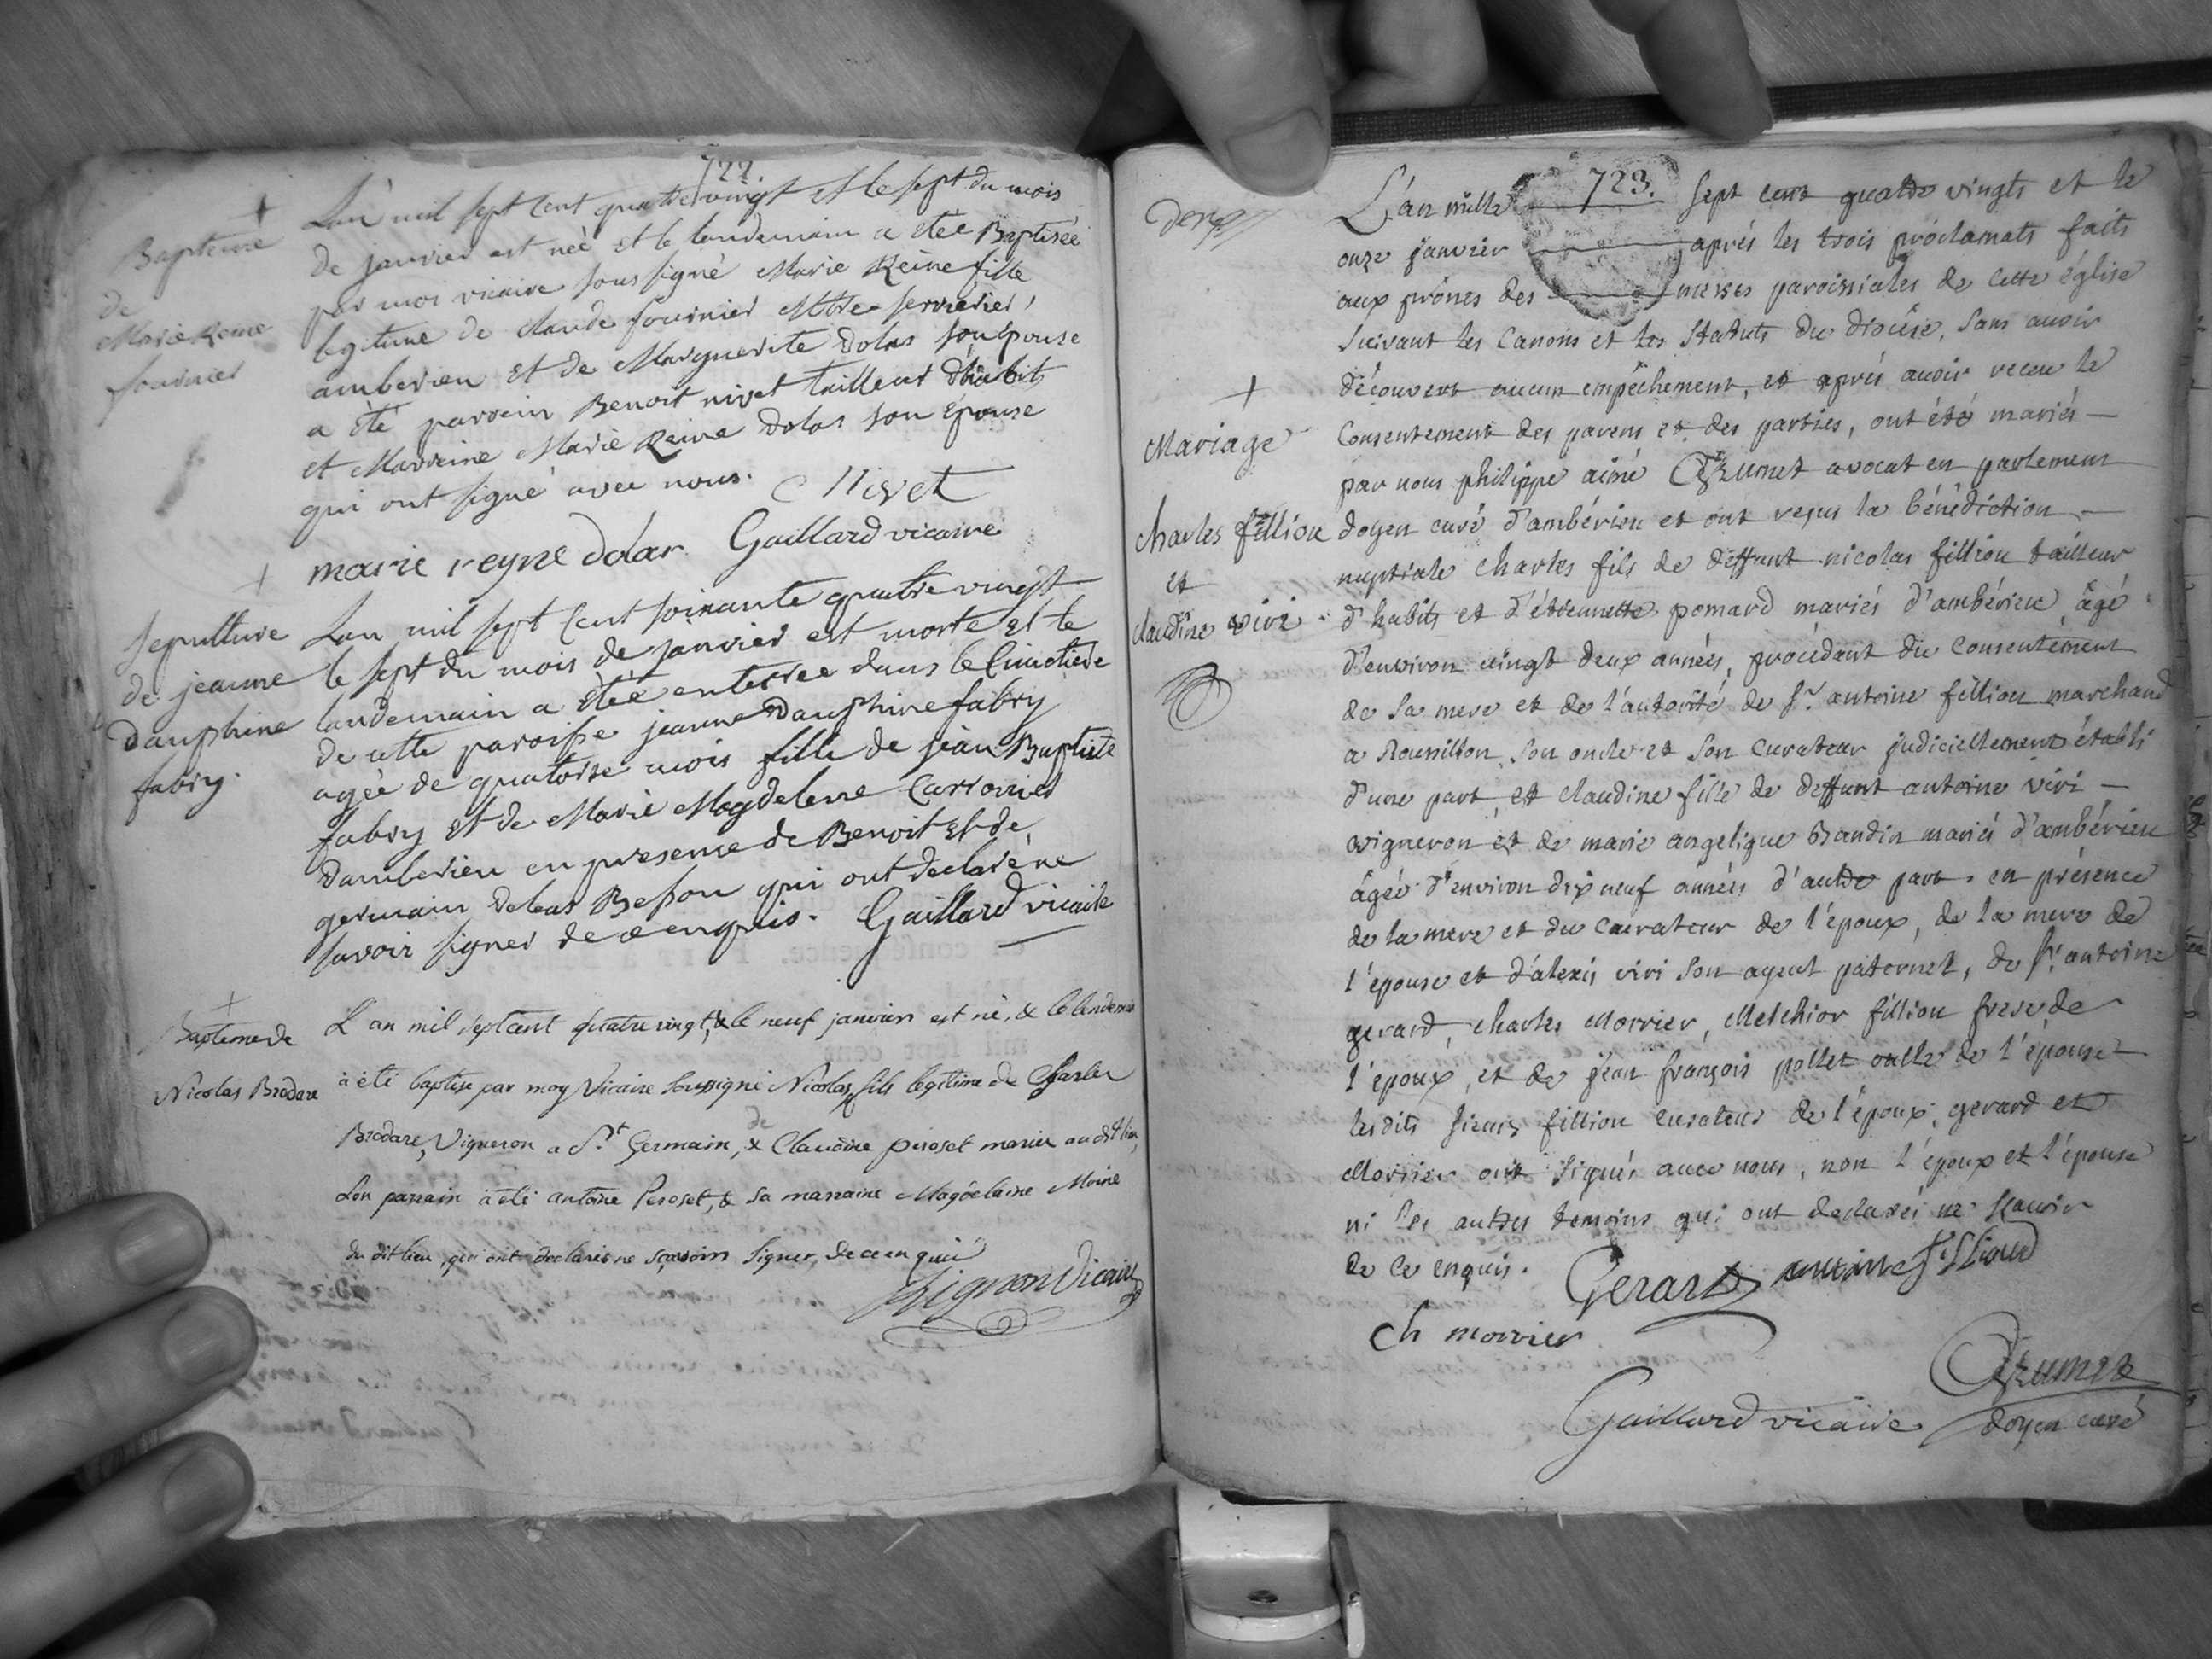 722
+
Baptême
de
Marie Reine
fournier
L'an mil sept Cent quatre vingt et le sept du mois
de janvier est née et le landemain a étée Baptisée
par moi vicaire sous signé Marie Reine fille
legitime de claude fournier Mtre serrurier,
amberieu et de Marguerite dolas son épouse
a été parrein Benoit nivet tailleur d'habit
et Marreine Marie Reine dolas son épouse
qui ont signé avec nous. Nivet
marie reyne dolar Gaillard vicaire
+
Sepulture
de jeanne
dauphine
fabry.
Lan mil sept Cent soixante quatre vingt
le sept du mois de janvier est morte et le
landemain a étée enterree dans le Cimetiere
de cette paroisse jeanne Dauphine fabry
agée de quatorze mois fille de jean Baptiste
fabry et de Marie Magdelene Carronier
damberieu en presence de Benoit et de
germain debeas Besson qui ont declaré ne
savoir signer de ce enquis. Gaillard vicaire
+
Bapteme de
Nicolas Brodare
L'an mil sept cent quatre vingt, & le neuf janvier est né, & le lendemain
a été baptise par moy Vicaire soussigné Nicolas fils legitime de Charles
Brodare, Vigneron a St. Germain, & de Claudine peroset mariés au dit lieu,
son parrain a été antoine Peroset, & sa marraine Magdelaine Moine
du dit lieu, qui ont declarés ne sçavoir signer, de ce enquis
Rignon Vicaire
723.
+
Mariage
charles fillion
et
claudine vivi
L'an mille sept cent quatre vingts et le
onze janvier après les trois proclamats faits
aux prônes des messes paroissiales de cette église
suivant les Canons et les Statuts du diocèse, sans avoir
découvert aucun empêchement, et après avoir receu le
Consentement des parens et des parties, ont été mariés —
par nous philippe aimé Grumet avocat en parlement
doyen curé d'ambérieu et ont reçus la bénédiction —
nuptiale charles fils de deffunt nicolas fillion tailleur
d'habits et d'étiennette pomard mariés d'ambérieu âgé
d'environ vingt deux années, procédant du Consentement
de sa mere et de l'autorité de Sr. antoine fillion marchand
a Roussillon son oncle et son curateur judiciellement établi
d'une part et claudine fille de deffunt antoine vivi —
vigneron et de marie angelique Baudin mariés d'ambérieu
âgée d'environ dix neuf années d'autre part. en présence
de la mere et du Curateur de l'époux, de la mere de
l'épouse et d'alexis vivi son ayeul paternel, de Sr. antoine
gerard, charles Morrier, Melchior fillion frere de
l'époux, et de jean françois pollet oncle de l'épouse
les dits sieurs fillion curateur de l'époux, gerard et
Morrier ont signés avec nous, non l'époux et l'épouse
ni les autres témoins qui ont declarés ne sçavoir
de ce enquis. Gerard antoine filliond
Ch morrier
Grumet
Gaillard vicaire doyen curé